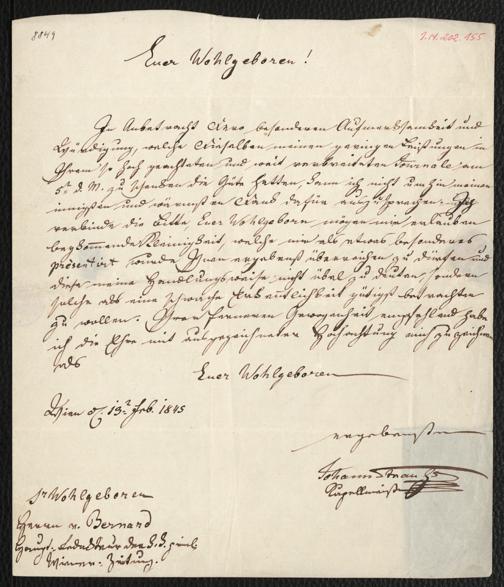 8849
I.N. 202.155
Euer Wohlgeboren!
In Anbetracht dero besonderen Aufmerksamkeit und
Würdigung, welche dieselben meinen geringen Leistungen in
Ihrem so hoch geachteten und weit verbreiteten Journale am
5t d. M. zu schenken die Güte hatten, kann ich nicht umhin meinen
innigsten und wärmsten Dank dafür auszusprechen. Ich
verbinde die Bitte, Euer Wohlgeboren mögen mir erlauben
beykommende Kleinigkeit, welche mir als etwas besonderes
präsentirt wurde Ihnen ergebenst überreichen zu dürfen und
diese meine Handlungsweise nicht übel zu deuten sondern
solche als eine schwache Erkenntlichkeit gütigst betrachten
zu wollen. Ihrer ferneren Gewogenheit empfehlend habe
ich die Ehre mit ausgezeichneter Hochachtung mich zu zeichnen
als
Euer Wohlgeboren
Wien d. 13t Feb. 1845
ergebenster
Johann Strauss
Kapellmeister
Sr Wohlgeboren
Herrn v. Bernard
Haupt-Redakteur der k. k. priv.
Wiener-Zeitung.